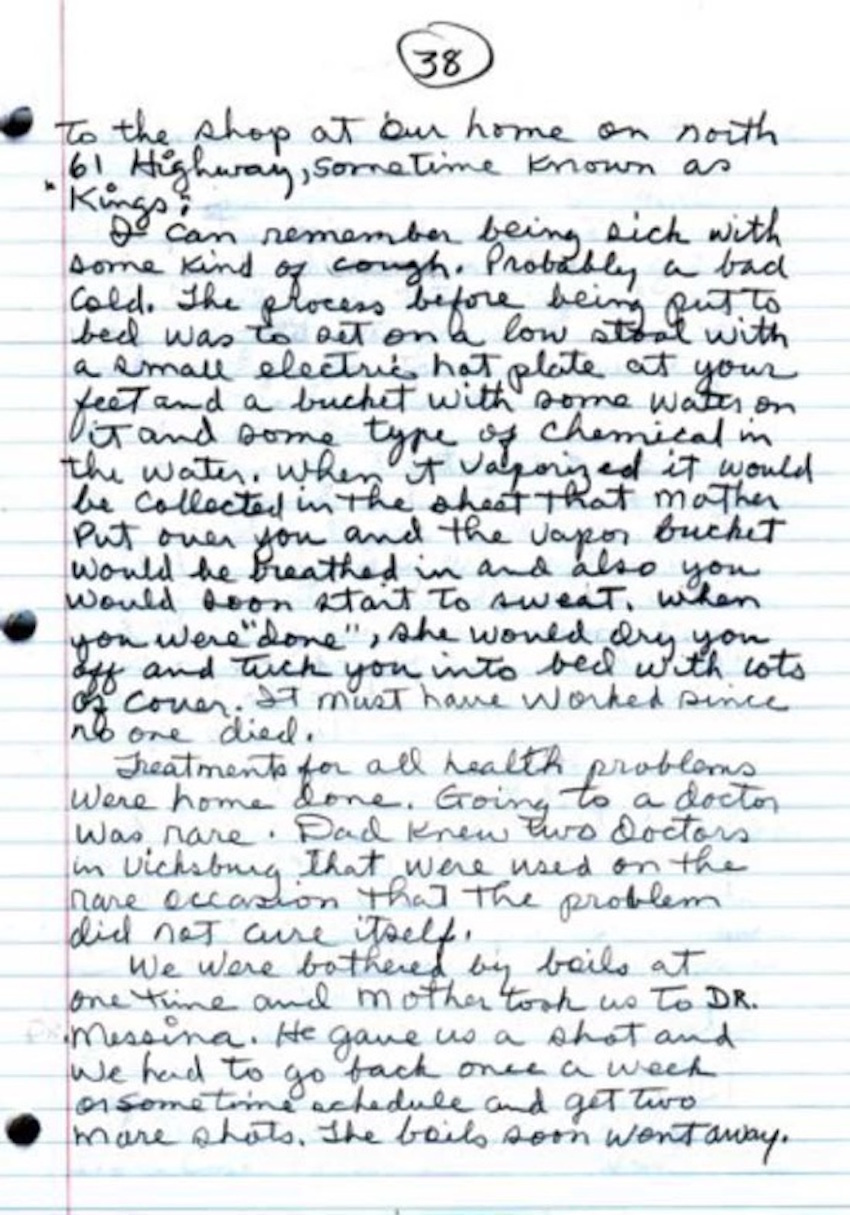 38
to the shop at our home on north
61 Highway, sometime known as
"Kings."
I can remember being sick with
some kind of cough. Probably a bad
cold. The process before being put to
bed was to set on a low stool with
a small electric hot plate at your
feet and a bucket with some water on
it and some type of chemical in
the water. When it vaporized it would
be collected in the sheet that mother
put over you and the vapor bucket
would be breathed in and also you
would soon start to sweat. When
you were "done", she would dry you
off and tuck you into bed with lots
of cover. It must have worked since
no one died.
Treatments for all health problems
were home done. Going to a doctor
was rare. Dad knew two doctors
in Vicksburg that were used on the
rare occasion that the problem
did not cure itself.
We were bothered by boils at
one time and Mother took us to DR.
Messina. He gave us a shot and
we had to go back once a week
or sometime schedule and get two
more shots. The boils soon went away.